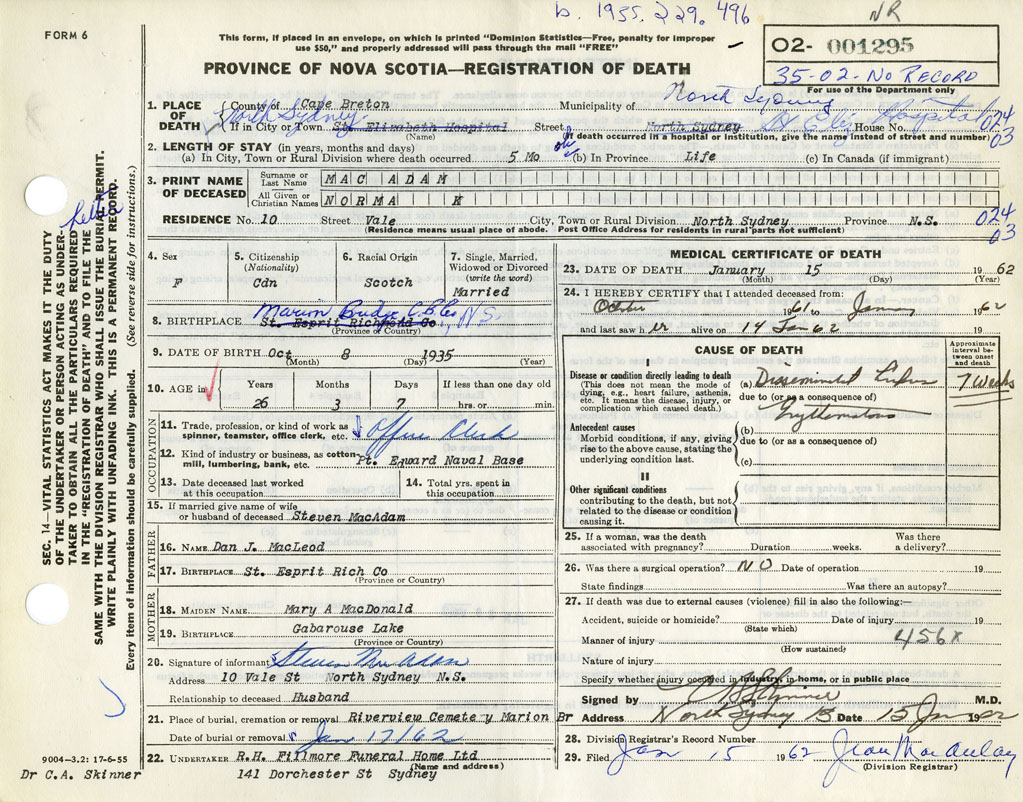 b. 1955. 229. 496
NR
FORM 6
This form, if placed in an envelope, on which is printed "Dominion Statistics—Free, penalty for improper
use $50," and properly addressed will pass through the mail "FREE"
02- 001295
35-02-No Record
For use of the Department only
PROVINCE OF NOVA SCOTIA—REGISTRATION OF DEATH
1. PLACE OF DEATH County of Cape Breton Municipality of North Sydney
North Sydney
If in City or Town St. Elizabeth Hospital Street North Sydney St Eliz Hospital House No. 024
(Name) (If death occurred in a hospital or institution, give its name instead of street and number) 03
2. LENGTH OF STAY (in years, months and days)
(a) In City, Town or Rural Division where death occurred 5 Mo (b) In Province Life (c) In Canada (if immigrant)
3. PRINT NAME OF DECEASED Surname or Last Name MAC ADAM
All Given or Christian Names NORMA K
RESIDENCE No. 10 Street Vale City, Town or Rural Division North Sydney Province N.S. 024
(Residence means usual place of abode. Post Office Address for residents in rural parts not sufficient) 03
4. Sex F
5. Citizenship (Nationality) Cdn
6. Racial Origin Scotch
7. Single, Married, Widowed or Divorced (write the word) Married
Marion Bridge C.B. Co, N.S.
8. BIRTHPLACE St. Esprit Richmond Co
(Province or Country)
9. DATE OF BIRTH Oct 8 1935
(Month) (Day) (Year)
10. AGE in Years Months Days If less than one day old
26 3 7 hrs. or min.
OCCUPATION
11. Trade, profession, or kind of work as spinner, teamster, office clerk, etc. Office Clerk
12. Kind of industry or business, as cotton-mill, lumbering, bank, etc. Pt. Edward Naval Base
13. Date deceased last worked at this occupation
14. Total yrs. spent in this occupation
15. If married give name of wife or husband of deceased Steven MacAdam
FATHER
16. NAME Dan J. MacLeod
17. BIRTHPLACE St. Esprit Rich Co
(Province or Country)
MOTHER
18. MAIDEN NAME Mary A MacDonald
19. BIRTHPLACE Gabarouse Lake
(Province or Country)
20. Signature of informant Steven MacAdam
Address 10 Vale St North Sydney N.S.
Relationship to deceased Husband
21. Place of burial, cremation or removal Riverview Cemetery Marion Br
Date of burial or removal Jan 17/62
22. UNDERTAKER R.H. Fillmore Funeral Home Ltd
(Name and address)
141 Dorchester St Sydney
9004—3.2: 17-6-55
Dr C.A. Skinner
SEC. 14—VITAL STATISTICS ACT MAKES IT THE DUTY
OF THE UNDERTAKER OR PERSON ACTING AS UNDER-
TAKER TO OBTAIN ALL THE PARTICULARS REQUIRED
IN THE "REGISTRATION OF DEATH" AND TO FILE THE
SAME WITH THE DIVISION REGISTRAR WHO SHALL ISSUE THE BURIAL PERMIT.
WRITE PLAINLY WITH UNFADING INK. THIS IS A PERMANENT RECORD.
Every item of information should be carefully supplied. (See reverse side for instructions.)
MEDICAL CERTIFICATE OF DEATH
23. DATE OF DEATH January 15 1962
(Month) (Day) (Year)
24. I HEREBY CERTIFY that I attended deceased from:
October 1961 to January 1962
and last saw her alive on 14 Jan 62
CAUSE OF DEATH
Approximate interval between onset and death
I
Disease or condition directly leading to death
(This does not mean the mode of dying, e.g., heart failure, asthenia, etc. It means the disease, injury, or complication which caused death.)
(a) Disseminated Lupus 7 Weeks
due to (or as a consequence of)
Erythematosus
Antecedent causes
Morbid conditions, if any, giving rise to the above cause, stating the underlying condition last.
(b)
due to (or as a consequence of)
(c)
II
Other significant conditions
contributing to the death, but not related to the disease or condition causing it.
25. If a woman, was the death associated with pregnancy? Duration weeks. Was there a delivery?
26. Was there a surgical operation? NO Date of operation 19
State findings Was there an autopsy?
27. If death was due to external causes (violence) fill in also the following:—
Accident, suicide or homicide? Date of injury 19
(State which)
Manner of injury 456x
(How sustained)
Nature of injury
Specify whether injury occurred in industry, in home, or in public place
Signed by C A Skinner M.D.
Address North Sydney NS Date 15 Jan 1962
28. Division Registrar's Record Number
29. Filed Jan 15 1962 Jean MacAulay
(Division Registrar)